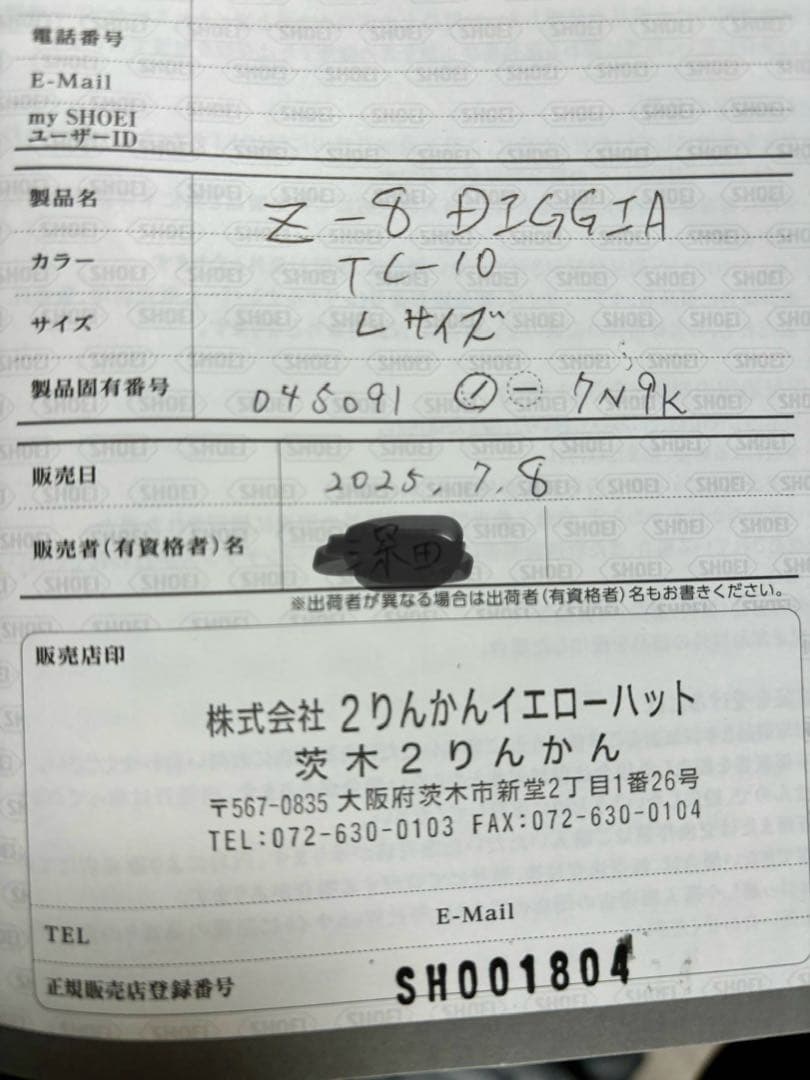 電話番号
E-Mail
my SHOEI
ユーザーID
製品名 Z-8 DIGGIA
カラー TC-10
サイズ Lサイズ
製品固有番号 045091 ✓ - 7N9K
販売日 2025.7.8
販売者(有資格者)名
※出荷者が異なる場合は出荷者(有資格者)名もお書きください。
販売店印
株式会社 2りんかんイエローハット
茨木2りんかん
〒567-0835 大阪府茨木市新堂2丁目1番26号
TEL:072-630-0103 FAX:072-630-0104
TEL E-Mail
正規販売店登録番号 SH001804